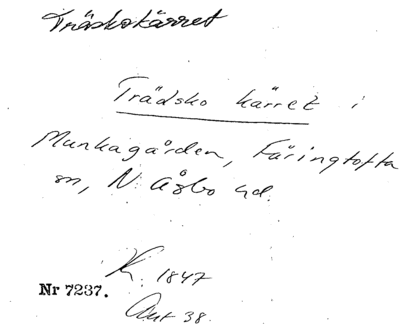 Träskokärret
Trädsko kärret i
Munkagården, Färingtofta
sn, N. Åsbo hd.
K. 1847
Nr 7237.
Avt 38.